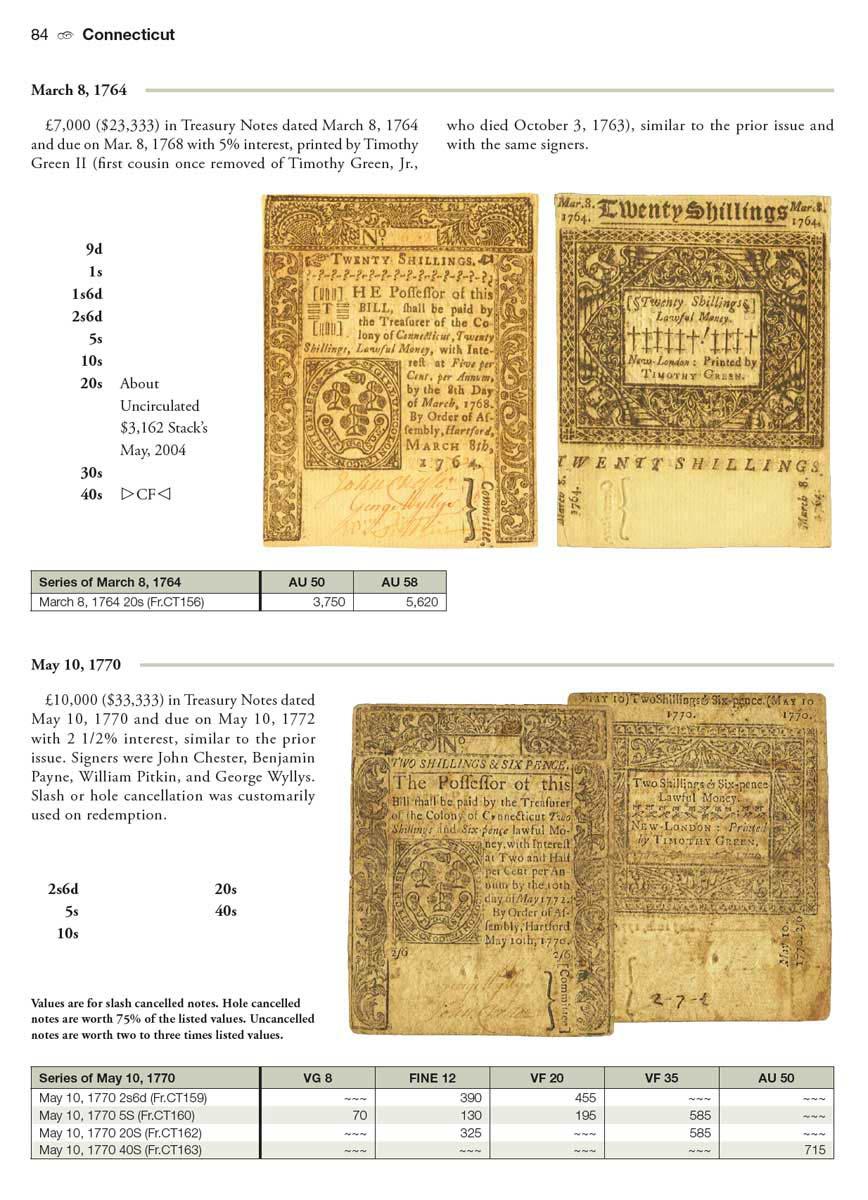 84 Connecticut
March 8, 1764
£7,000 ($23,333) in Treasury Notes dated March 8, 1764
and due on Mar. 8, 1768 with 5% interest, printed by Timothy
Green II (first cousin once removed of Timothy Green, Jr.,
who died October 3, 1763), similar to the prior issue and
with the same signers.
9d
1s
1s6d
2s6d
5s
10s
20s About
Uncirculated
$3,162 Stack's
May, 2004
30s
40s ▷CF◁
No
TWENTY SHILLINGS.
THE Poſſeſſor of this
BILL, ſhall be paid by
the Treaſurer of the Co
lony of Connecticut, Twenty
Shillings, Lawful Money, with Inte-
reſt at Five per
Cent. per Annum,
by the 8th Day
of March, 1768.
By Order of Aſ-
ſembly, Hartford,
MARCH 8th,
1764.
Committee.
Mar.8. Twenty Shillings Mar.8.
1764. 1764.
[§Twenty Shillings§]
Lawful Money.
New-London: Printed by
TIMOTHY GREEN.
TWENTY SHILLINGS
March 8.
1764.
March 8.
1764.
Series of March 8, 1764 AU 50 AU 58
March 8, 1764 20s (Fr.CT156) 3,750 5,620
May 10, 1770
£10,000 ($33,333) in Treasury Notes dated
May 10, 1770 and due on May 10, 1772
with 2 1/2% interest, similar to the prior
issue. Signers were John Chester, Benjamin
Payne, William Pitkin, and George Wyllys.
Slash or hole cancellation was customarily
used on redemption.
2s6d 20s
5s 40s
10s
Values are for slash cancelled notes. Hole cancelled
notes are worth 75% of the listed values. Uncancelled
notes are worth two to three times listed values.
No
TWO SHILLINGS & SIX PENCE.
The Poſſeſſor of this
Bill ſhall be paid by the Treaſurer
of the Colony of Connecticut Two
Shillings and Six-pence lawful Mo-
ney, with Intereſt
at Two and Half
per Cent per An-
num by the 10th
day of May 1772.
By Order of Aſ-
ſembly, Hartford
May 10th, 1770.
2/6 2/6
[Committee]
MAY 10) Two Shillings & Six-pence. (MAY 10
1770. 1770.
Two Shillings & Six-pence
Lawful Money.
NEW-LONDON: Printed
by TIMOTHY GREEN.
May 10.
1770. 2/6
2-7-2
Series of May 10, 1770 VG 8 FINE 12 VF 20 VF 35 AU 50
May 10, 1770 2s6d (Fr.CT159) ~~~ 390 455 ~~~ ~~~
May 10, 1770 5S (Fr.CT160) 70 130 195 585 ~~~
May 10, 1770 20S (Fr.CT162) ~~~ 325 ~~~ 585 ~~~
May 10, 1770 40S (Fr.CT163) ~~~ ~~~ ~~~ ~~~ 715